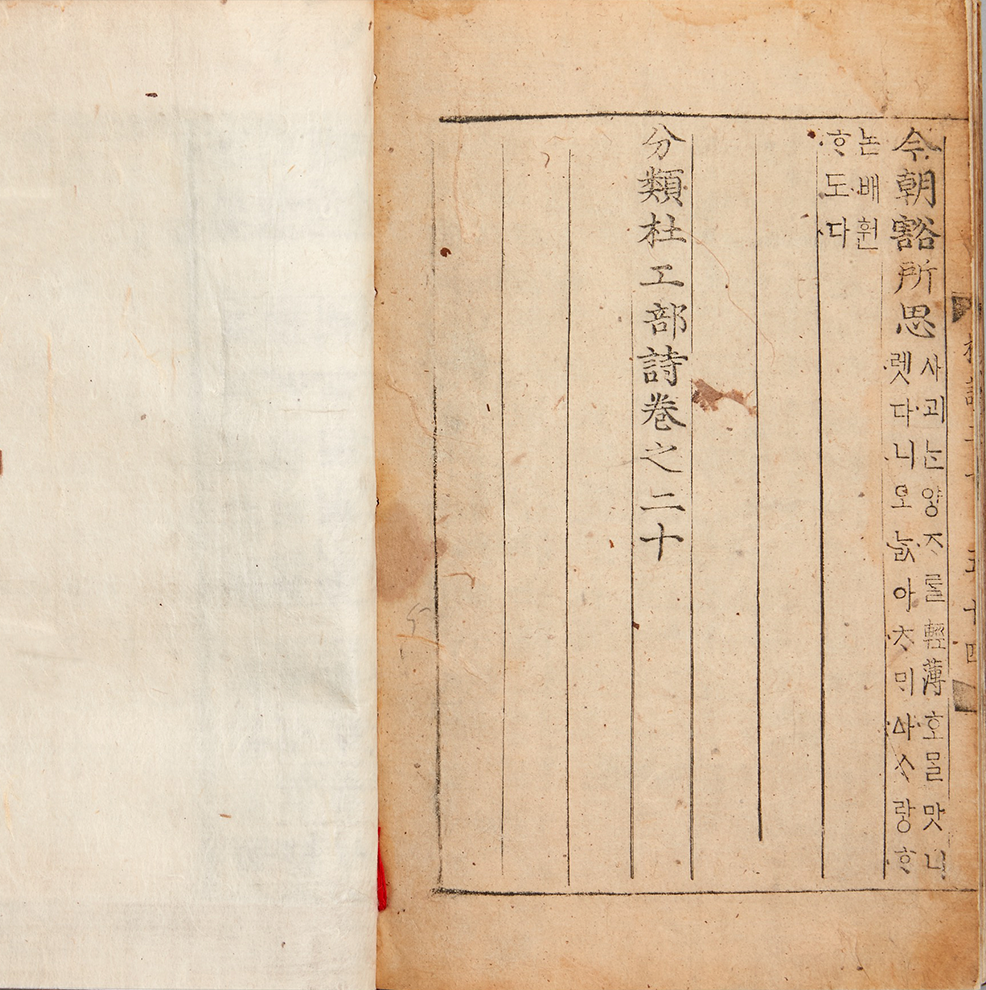 今朝豁所思
사괴ᄂᆞᆫ양ᄌᆞᄅᆞᆯ輕薄호ᄆᆞᆯ맛니
렛다니오ᄂᆞᆳ아ᄎᆞᄆᆡᅀᅡᄉᆞ랑ᄒᆞ
논배훤
ᄒᆞ도다
分類杜工部詩卷之二十